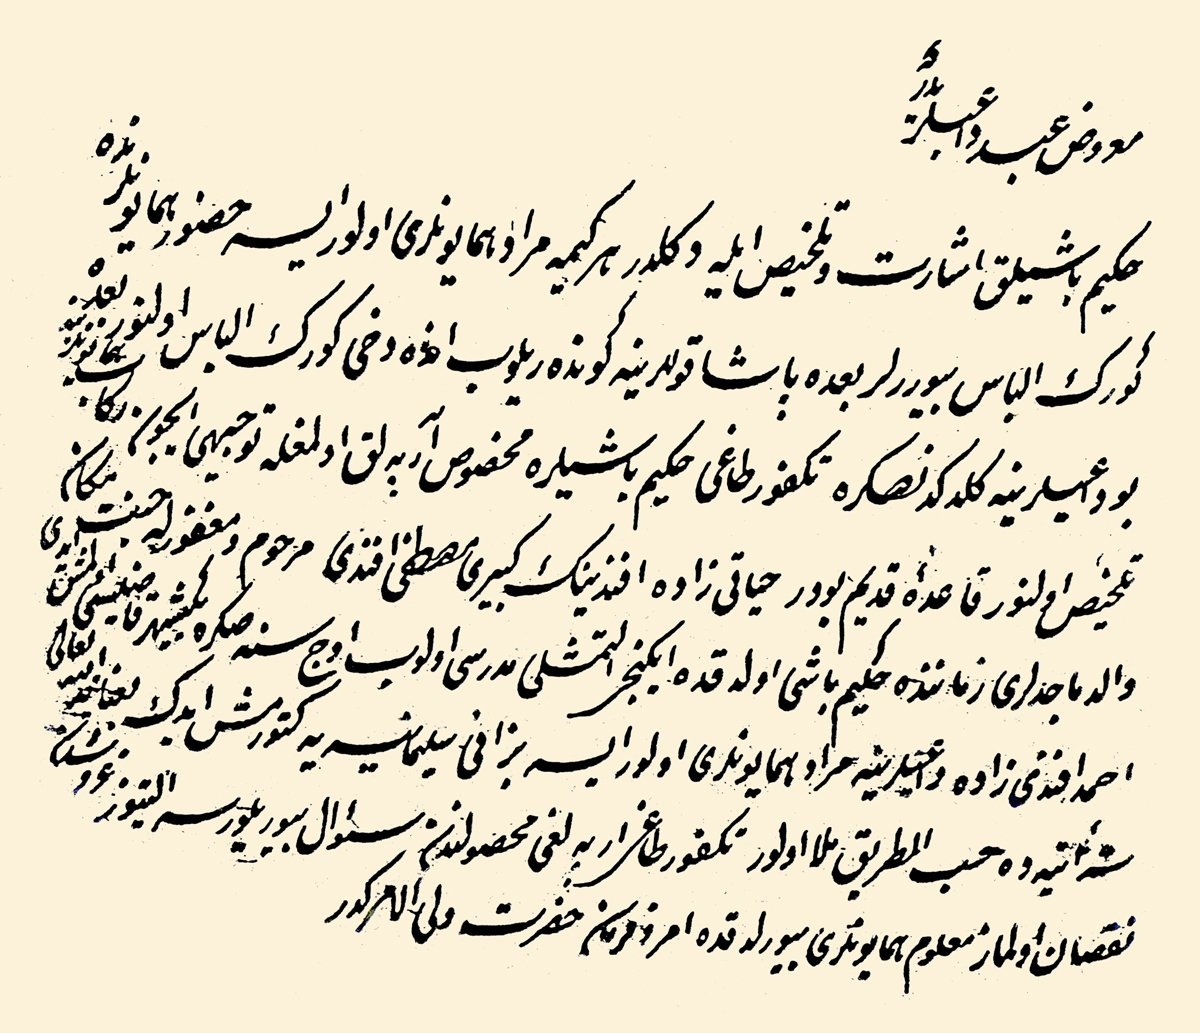 معروض عبد داعیلریدر که
حكیم باشیلق اشارت و تلخیص ایله دكلدر هر كیمه مراد همایونلری اولور ایسه حضور همایونلرنده
كورك الباس بیوررلر بعده پاشا قوللرینه كوندریلوب انده دخی كورك الباس اولنور بعده
بو داعیلرینه كلدكدنصكره تكفورطاغی حكیم باشیلره مخصوص آرپه لق اولمغله توجیهی ایچون ركاب همایونلرینه
تلخیص اولنور قاعدهٔ قدیم بودر حیاتی زاده افندینك كبیری مصطفی افندی مرحوم و مغفور له جنت مكان
والد ماجدلری زماننده حكیم باشی اولدقده ایكنجی التمشلی مدرسی اولوب اوچ سنه صكره یكیشهر قاضیسی اولمش ایدی
احمد افندی زاده داعیلرینه مراد همایونلری اولور ایسه بز انی سلیمانیه یه كتورمش ایدك بعنایة الله تعالی
سنهٔ آتیه ده حسب الطریق ملا اولور تكفورطاغی ارپه لغی محصولندن سئوال بیوریلورسه التیوز غروشدن
نقصان اولماز معلوم همایونلری بیورلدقده امر و فرمان حضرت ولی الامركدر